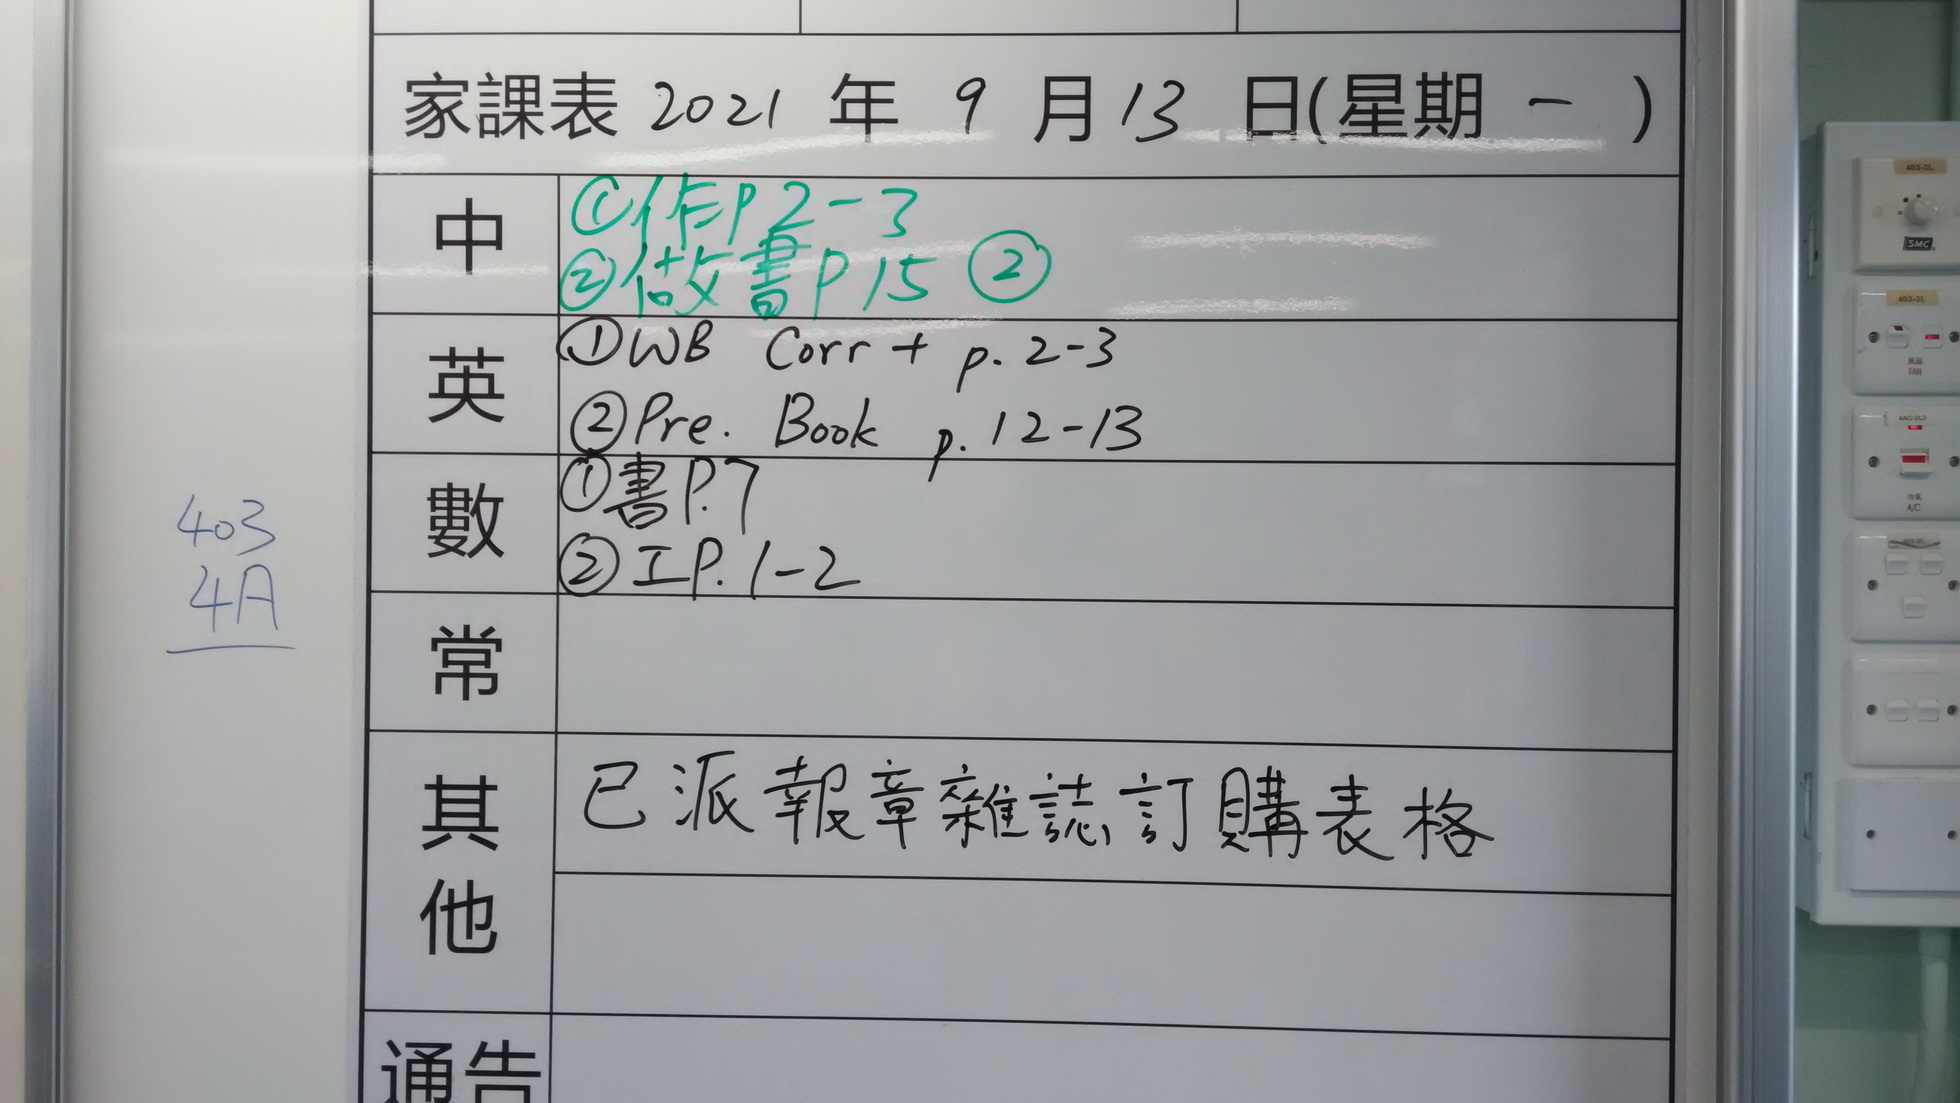 家課表 2021 年 9 月 13 日(星期 一 )
中
①作P2-3
②做書P15 ②
英
①WB Corr + p. 2-3
②Pre. Book p. 12-13
數
①書P.7
②工P.1-2
常
其他
已派報章雜誌訂購表格
通告
403
4A
403-3L
SMC
403-2L
風扇
FAN
冷氣
A/C